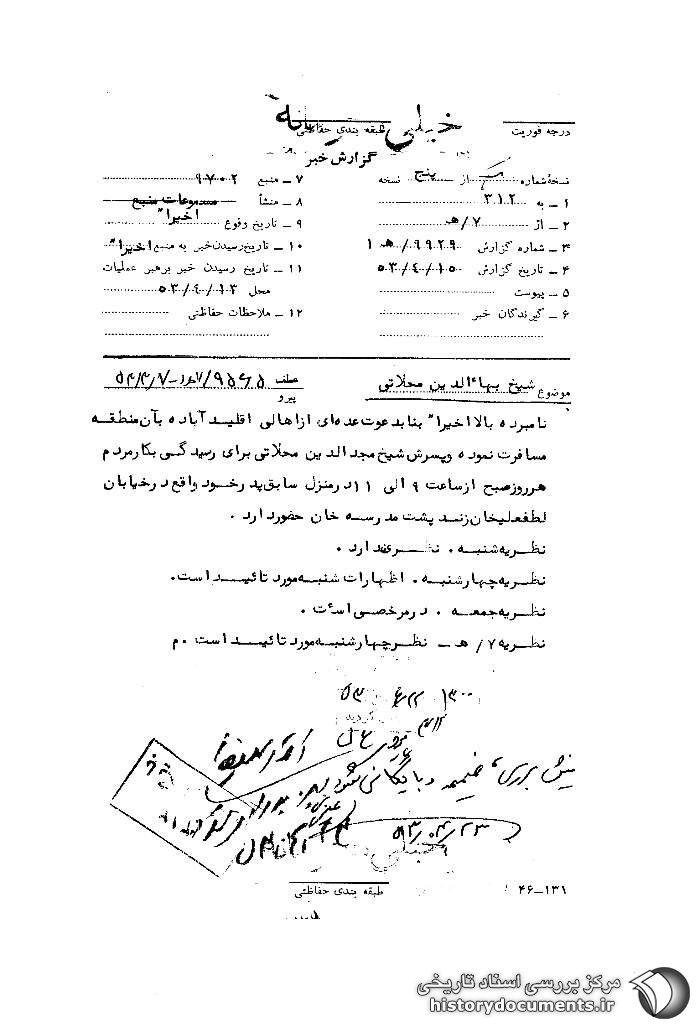 خیلی محرمانه
درجه فوریت
طبقه بندی حفاظتی
گزارش خبر
نسخه شماره از پنج نسخه
۱ - به ۳۱۲
۲ - از ۷/هـ
۳ - شماره گزارش ۹۹۲۹/هـ ۱
۴ - تاریخ گزارش ۵۳/۴/۱۵
۵ - پیوست
۶ - گیرندگان خبر
۷ - منبع ۹۷۰۲
۸ - منشأ مسموعات منبع
۹ - تاریخ وقوع اخیرا"
۱۰ - تاریخ رسیدن خبر به منبع اخیرا"
۱۱ - تاریخ رسیدن خبر برهبر عملیات
محل ۵۳/۴/۱۳
۱۲ - ملاحظات حفاظتی
موضوع شیخ بهاءالدین محلاتی
عطف
پیرو
نامبرده بالا اخیرا" بنا بدعوت عده‌ای از اهالی اقلید آباده بآن منطقه
مسافرت نموده و پسرش شیخ مجدالدین محلاتی برای رسیدگی بکار مردم
هرروز صبح از ساعت ۹ الی ۱۱ در منزل سابق پدر خود واقع در خیابان
لطفعلیخان زند پشت مدرسه خان حضور دارد .
نظریه شنبه . نظری ندارد .
نظریه چهارشنبه . اظهارات شنبه مورد تائید است.
نظریه جمعه . در مرخصی است .
نظریه ۷/هـ - نظر چهارشنبه مورد تائید است .م
ضمیمه و بایگانی شود
۵۳/۰۴/۲۳
خیلی
طبقه بندی حفاظتی
۴۶-۱۳۱
مرکز بررسی اسناد تاریخی
historydocuments.ir